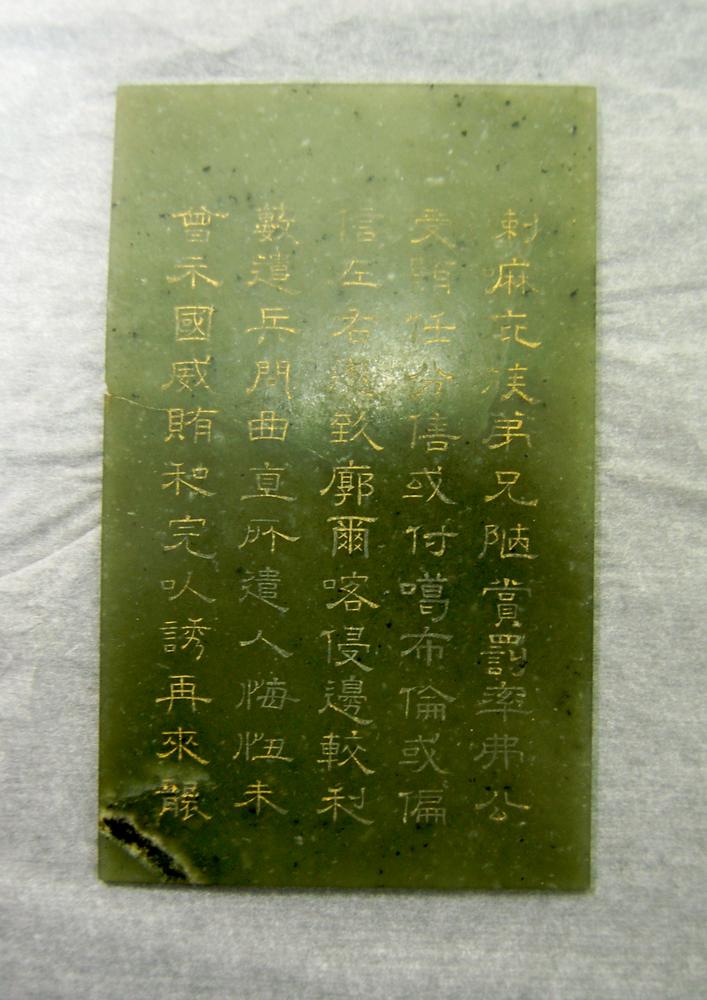 剌嘛庇族弟兄陋賞罰率弗公
受賄任借或付噶布倫或偏
信左右遂致廓爾喀侵邊較利
數遣兵問曲直所遣人悔忸未
曾示國威賄和完以誘再來